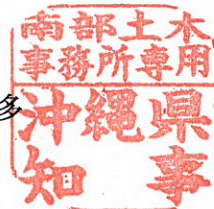 南部土木
事務所専用
沖縄県
知事
多